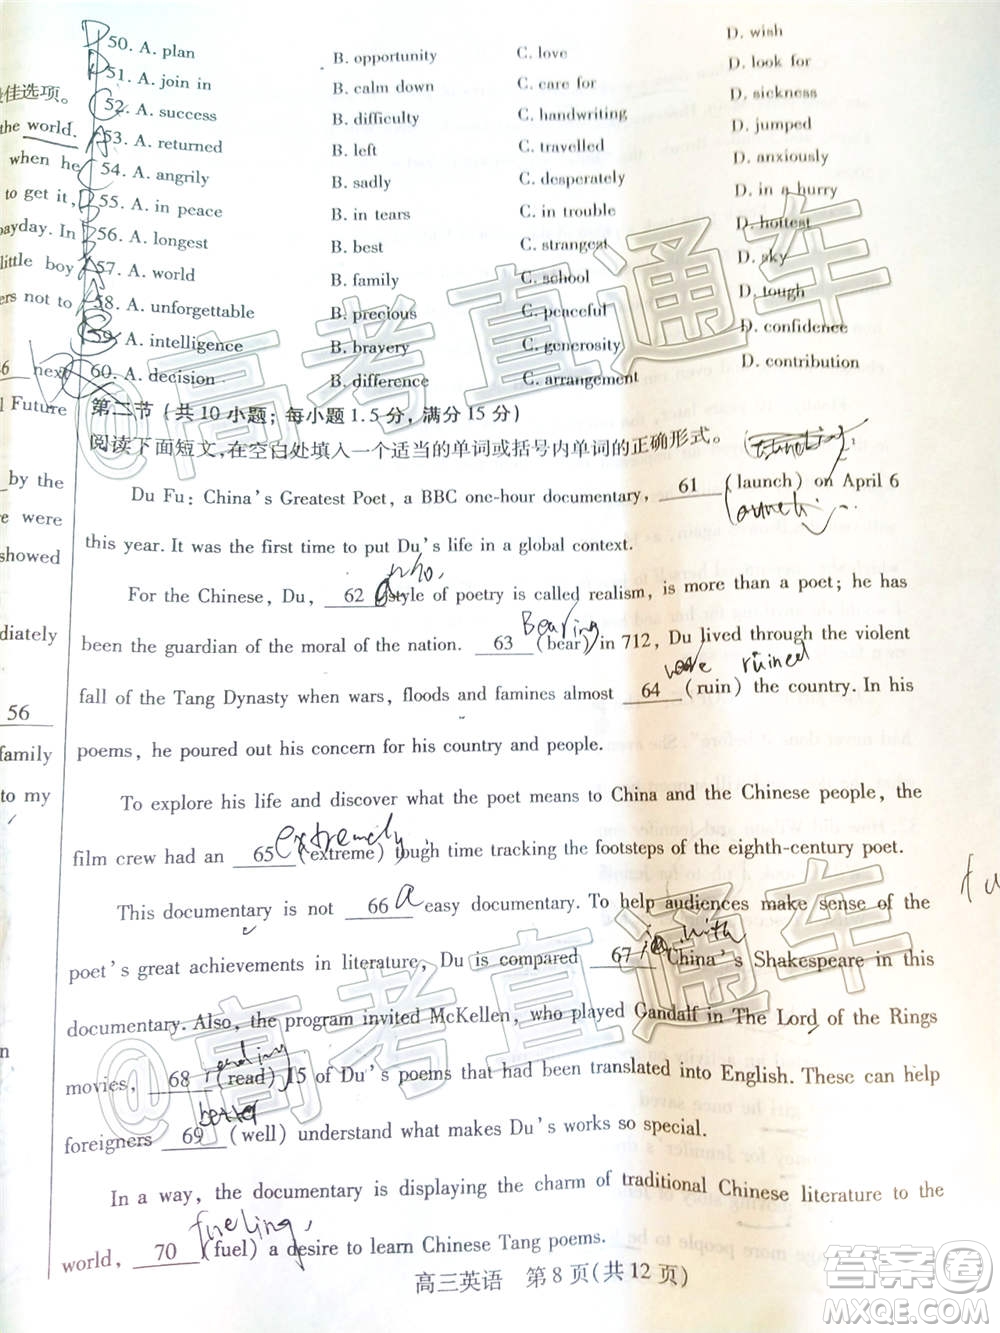 50. A. plan B. opportunity C. love D. wish
51. A. join in B. calm down C. care for D. look for
52. A. success B. difficulty C. handwriting D. sickness
53. A. returned B. left C. travelled D. jumped
54. A. angrily B. sadly C. desperately D. anxiously
55. A. in peace B. in tears C. in trouble D. in a hurry
56. A. longest B. best C. strangest D. hottest
57. A. world B. family C. school D. sky
58. A. unforgettable B. precious C. peaceful D. tough
59. A. intelligence B. bravery C. generosity D. confidence
60. A. decision B. difference C. arrangement D. contribution
佳选项。
the world.
when he
to get it,
payday. In
little boy
ers not to
next
Future
by the
e were
showed
diately
56
family
to my
第二节 (共 10 小题;每小题 1.5 分,满分 15 分)
阅读下面短文,在空白处填入一个适当的单词或括号内单词的正确形式。
Du Fu: China's Greatest Poet, a BBC one-hour documentary, 61 (launch) on April 6
this year. It was the first time to put Du's life in a global context.
who.
For the Chinese, Du, 62 style of poetry is called realism, is more than a poet; he has
Bearing
been the guardian of the moral of the nation. 63 (bear) in 712, Du lived through the violent
were ruined
fall of the Tang Dynasty when wars, floods and famines almost 64 (ruin) the country. In his
poems, he poured out his concern for his country and people.
To explore his life and discover what the poet means to China and the Chinese people, the
extremely
film crew had an 65 (extreme) tough time tracking the footsteps of the eighth-century poet.
This documentary is not 66 a easy documentary. To help audiences make sense of the
with
poet's great achievements in literature, Du is compared 67 China's Shakespeare in this
documentary. Also, the program invited McKellen, who played Gandalf in The Lord of the Rings
reading
movies, 68 (read) 15 of Du's poems that had been translated into English. These can help
better
foreigners 69 (well) understand what makes Du's works so special.
In a way, the documentary is displaying the charm of traditional Chinese literature to the
fueling
world, 70 (fuel) a desire to learn Chinese Tang poems.
高三英语 第 8 页(共 12 页)
@高考直通车
@高考直通车
答案卷
MXQE.COM